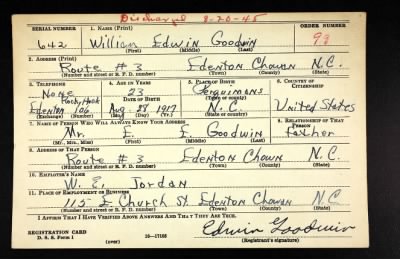 Discharged 8-20-45
SERIAL NUMBER 1. NAME (Print) ORDER NUMBER
642 William Edwin Goodwin 93
(First) (Middle) (Last)
2. ADDRESS (Print)
Route #3 Edenton Chowan N.C.
(Number and street or R. F. D. number) (Town) (County) (State)
3. TELEPHONE 4. AGE IN YEARS 5. PLACE OF BIRTH 6. COUNTRY OF CITIZENSHIP
None 23 Perquimans
DATE OF BIRTH (Town or county)
Edenton 106 Aug 28 1917 N.C. United States
(Exchange) (Number) (Mo.) (Day) (Yr.) (State or country)
7. NAME OF PERSON WHO WILL ALWAYS KNOW YOUR ADDRESS 8. RELATIONSHIP OF THAT PERSON
Mr. E. Goodwin father
(Mr., Mrs., Miss) (First) (Middle) (Last)
9. ADDRESS OF THAT PERSON
Route #3 Edenton Chowan N.C.
(Number and street or R. F. D. number) (Town) (County) (State)
10. EMPLOYER'S NAME
W. E. Jordan
11. PLACE OF EMPLOYMENT OR BUSINESS
115 E Church St. Edenton Chowan N.C.
(Number and street or R. F. D. number) (Town) (County) (State)
I AFFIRM THAT I HAVE VERIFIED ABOVE ANSWERS AND THAT THEY ARE TRUE.
REGISTRATION CARD
D. S. S. Form 1 (over) 16—17105 Edwin Goodwin
(Registrant's signature)